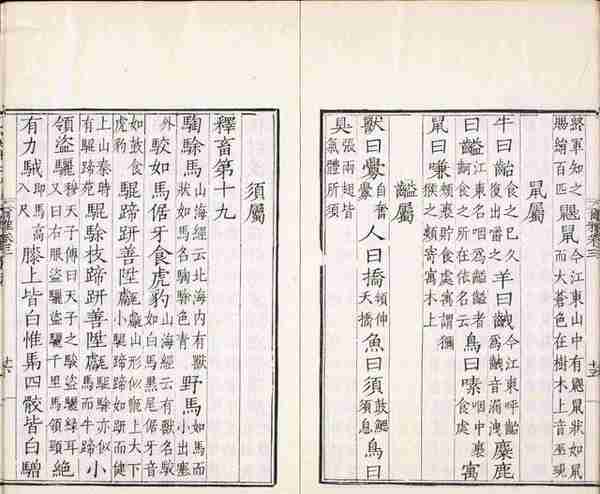 將軍知之賜絹百匹鼳鼠今江東山中有鼳鼠狀如鼠而大蒼色在樹木上音巫覡
鼠屬
牛曰齝食之已久復出嚼之羊曰齥今江東呼齝為齥音漏洩麋鹿
曰齸江東名咽為齸齸者齝食之所在依名云鳥曰嗉咽中裹食處寓
鼠曰嗛頰裏貯食處寓謂獼猴之類寄寓木上
齸屬
獸曰釁自奮釁人曰撟頻伸夭撟魚曰須鼓鰓須息鳥曰
狊張兩翅皆氣體所須
須屬
釋畜第十九
騊駼馬山海經云北海內有獸狀如馬名騊駼色青野馬如馬而小出塞
外駮如馬倨牙食虎豹山海經云有獸名駮如白馬黑尾倨牙音
如鼓食虎豹騉蹄趼善陞甗甗山形似甑上大下小騉蹄蹄如趼而健
上山秦時有騉蹄苑騉駼枝蹄趼善陞甗騉駼亦似馬而牛蹄小
領盜驪穆天子傳曰天子之駿盜驪綠耳又曰右服盜驪盜驪千里馬領頸絕
有力駥即馬高八尺膝上皆白惟馬四骹皆白驓